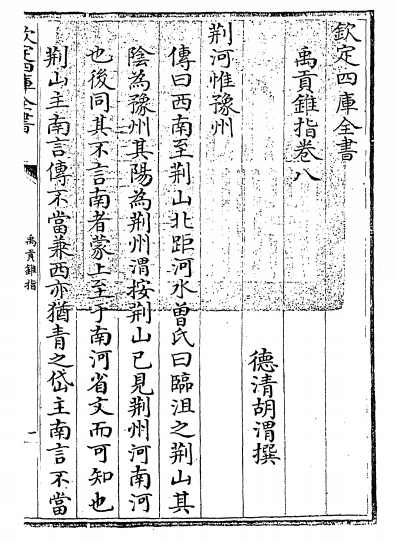 欽定四庫全書
禹貢錐指卷八
德清胡渭撰
荆河惟豫州
傳曰西南至荆山北距河水曾氏曰臨沮之荆山其
陰為豫州其陽為荆州渭按荆山已見荆州河南河
也後同其不言南者蒙上至于南河省文而可知也
荆山主南言傳不當兼西亦猶青之岱主南言不當
欽定四庫全書
禹貢錐指
一